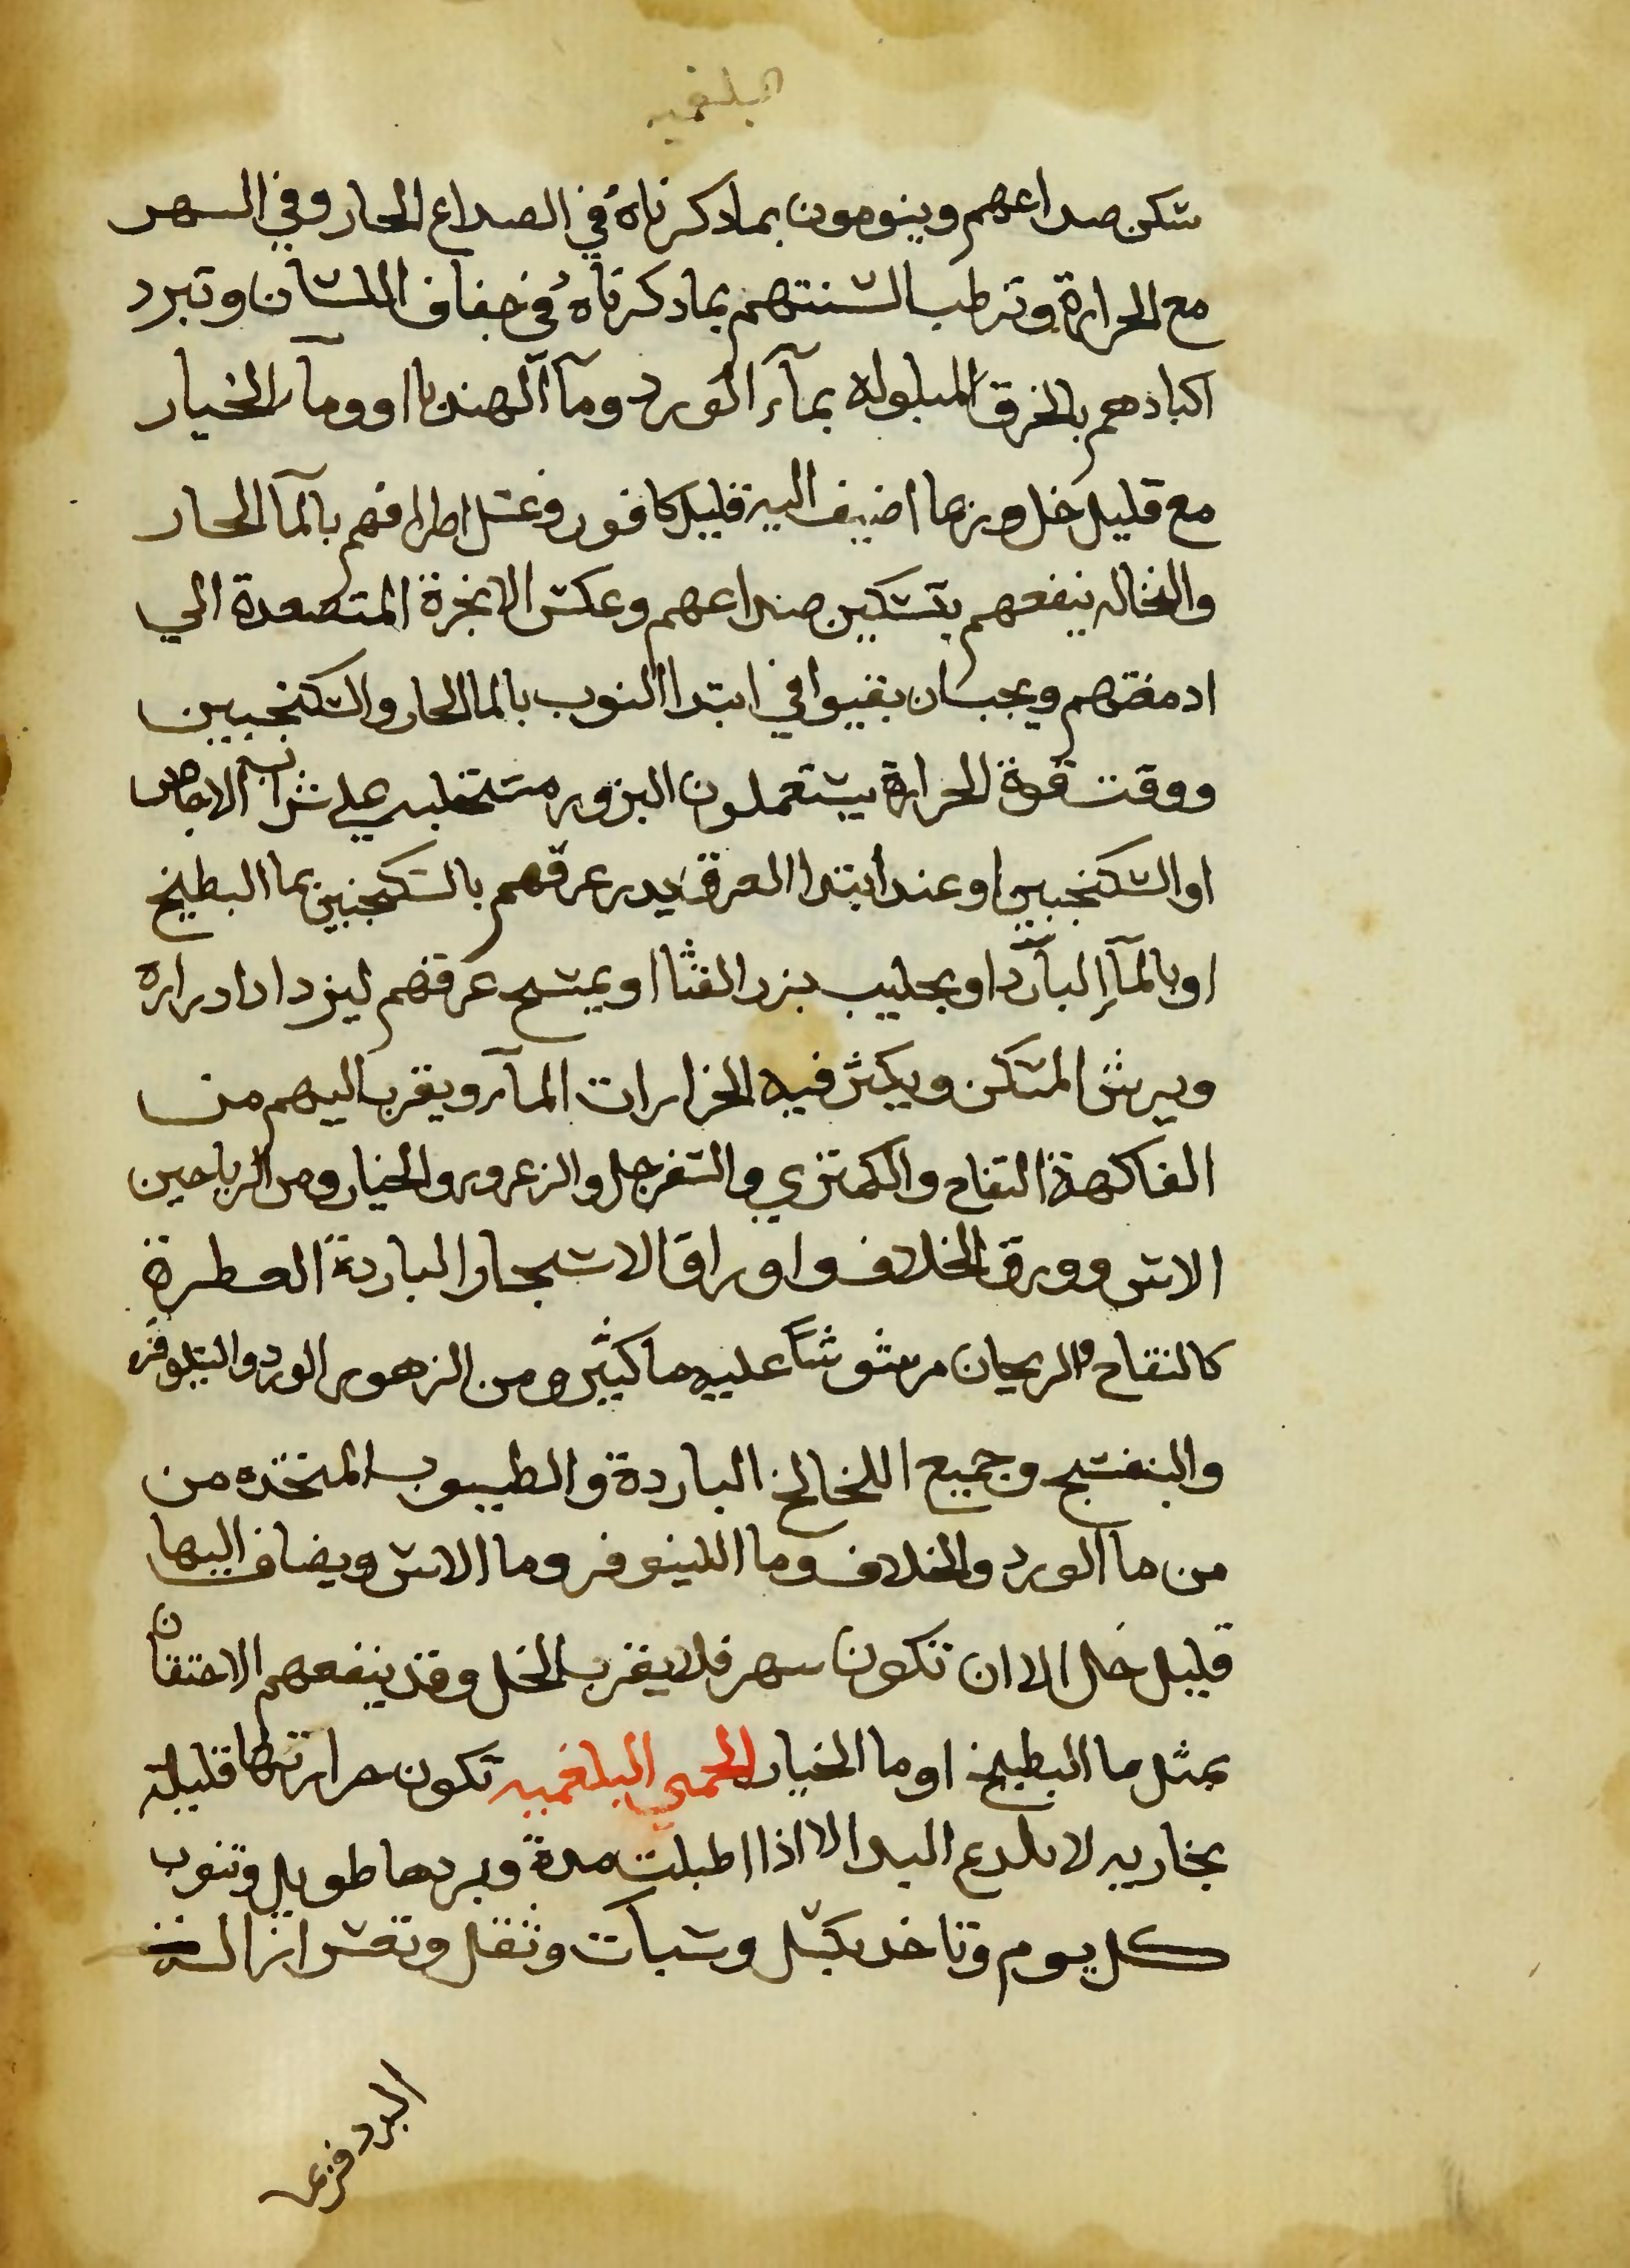 البلغميه
سكن صداعهم وينومون بما دكرناهُ في الصداع الحار وفي السهر
مع الحرارة وترطب السنتهم بما دكرناهُ في جفاف اللسان وتبرد
اكبادهم بالخرق المبلوله بمآء الورد ومآ الهندبا او ومآ الخيار
مع قليل خل وربما اضيف اليه قليل كافور وغسل اطرافهم بالمآ الحار
والنخاله ينفعهم بتسكين صداعهم وعكس الابخرة المتصعدة الي
ادمغتهم ويجب ان يقيوا في ابتدا النوب بالما الحار والسكنجبين
ووقت قوة الحرارة يستعملون البزور مستحلبه علي شراب الاجاص
او السكنجبين او عند ابتدا العرق يدر عرقهم بالسكنجبين بما البطيخ
او بالمآء البآرد او بحليب بزر القثا او يمسح عرقهم ليزداد ادراره
ويرش المسكن ويكثر فيه الخرارات المآء ويقرب اليهم من
الفاكهة التفاح والكمثري والسفرجل والزعرور والخيار ومن الرياحين
الاس وورق الخلاف واوراق الاشجار الباردة العطرة
كالتفاح والريحان مرشوشاً عليه ما كثير ومن الزهور الورد والنيلوفر
والبنفسج وجميع اللخالخ الباردة والطيبوب المتخده من
من ما الورد والخلاف وما اللينوفر وما الاس ويضاف اليها
قليل خل الا ان تكون سهر فلا يقرب الخل وقد ينفعهم الاحتقان
بمثل ما البطيخ او ما الخيار الحمي البلغميه تكون حرارتها قليلة
بخاريه لا تلدع اليد الا اذا اطيلت مدة وبردها طويل وتنوب
كل يوم وتاخد بكسل وسبات وثقل وتقشر
البرد فزعى